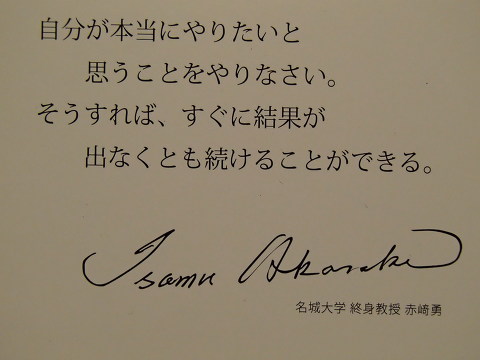 自分が本当にやりたいと
思うことをやりなさい。
そうすれば、すぐに結果が
出なくとも続けることができる。
Isamu Akasaki
名城大学 終身教授 赤﨑勇